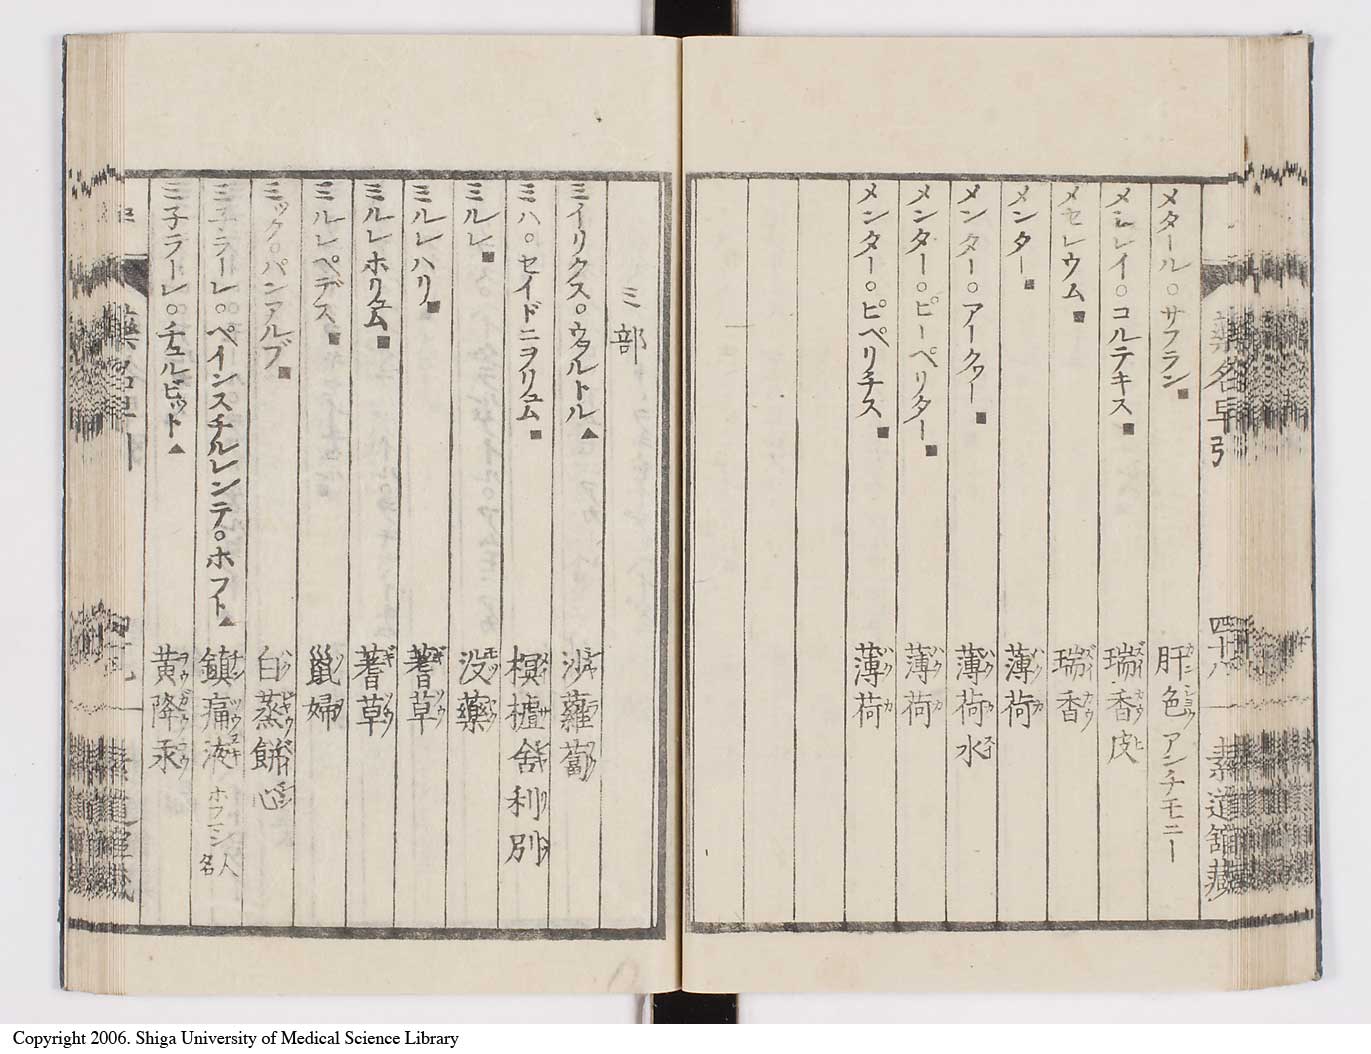 薬名早引 四十八 蒸道舘藏
メタール○サフラン■ 肝色アンチモニー
メシレイ○コルテキス■ 瑞香皮
メセレウム■ 瑞香
メンター■ 薄荷
メンター○アークワー■ 薄荷水
メンター○ピーペリター■ 薄荷
メンター○ピペリチス■ 薄荷
ミ部
ミイリクス○ウヲルトル▲ 沙蘿蔔
ミハ○セイドニヲリュム■ 榠樝舎利別
ミルレ■ 没藥
ミルレハリ■ 蓍草
ミルレホリュム■ 蓍草
ミルレペデス■ 鼠婦
ミック○パンアルブ■ 白蒸餅心
ミ子ラーレ○ペインスチルレンテ○ホフト▲ 鎮痛液 ホフマン人名
ミ子ラーレ○チュルビット▲ 黄降汞
Copyright 2006. Shiga University of Medical Science Library